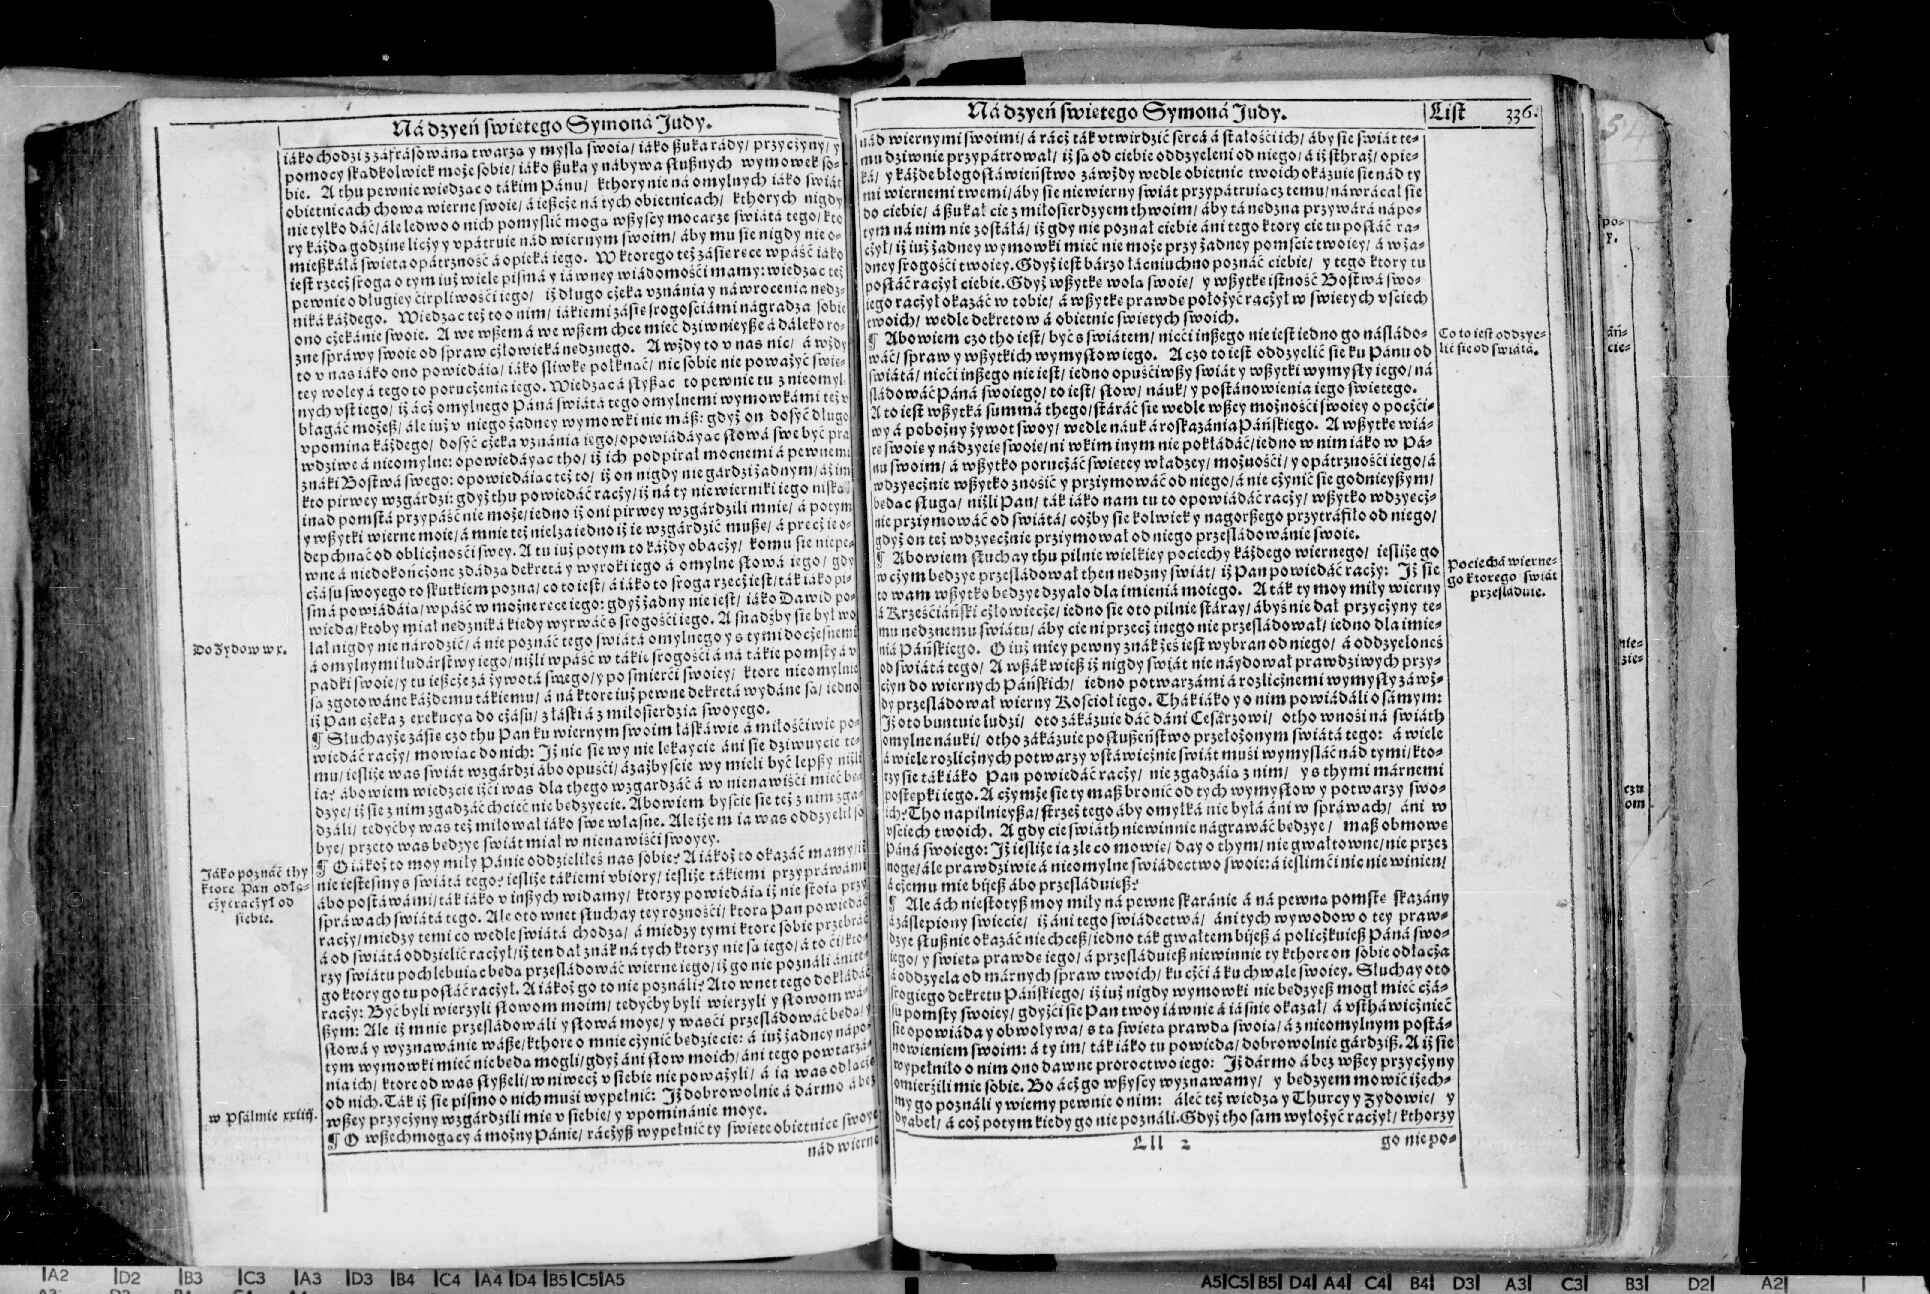 Ná dzyeń swietego Symoná Judy.
iáko chodzi z záfrásowána twarza y mysla swoia/ iáko ßuka rády/ przyczyny/ y
pomocy skadkolwiek może sobie/ iáko ßuka y nábywa słußnych wymowek so-
bie. A thu pewnie wiedzac o tákim Pánu/ kthory nie ná omylnych iáko świát
obietnicach chowa wierne swoie/ á ießcże ná tych obietnicach/ kthorych nigdy
nie tylko dáć/ ále ledwo o nich pomyslić moga wßyscy mocarze świátá tego/ kto
ry káżda godzine licży y vpátruie nád wiernym swoim/ áby mu sie nigdy nie o-
mießkáłá świeta opátrzność á opieká iego. W ktorego też zásie rece wpáść iáko
iest rzecż sroga o tym iuż wiele pismá y iáwney wiádomości mamy: wiedzac też
pewnie o długiey ćirpliwośći iego/ iż długo cżeka vznánia y náwrocenia nedz-
niká káżdego. Wiedzac też to o nim/ iákiemi zásie srogościámi nágradza sobie
ono cżekánie swoie. A we wßem á we wßem chce mieć dziwnieyße á dáleko ro-
zne spráwy swoie od spraw cżłowieká nedznego. A wżdy to v nas nic/ á wżdy
to v nas iáko ono powiedáia/ iáko śliwke połknać/ nic sobie nie poważyć swie-
tey woley á tego to porucżenia iego. Wiedzac á słyßac to pewnie tu z nieomyl
nych vst iego/ iż ácż omylnego Páná świátá tego omylnemi wymowkámi też v
błagáć możeß/ ále iuż v niego żadney wymowki nie maß: gdyż on dosyć długo
vpomina káżdego/ dosyć cżeka vznánia iego/ opowiádáyac słowá swe być pra
wdziwe á nieomylne: opowiedáyac tho/ iż ich podpirał mocnemi á pewnemi
znáki Bostwá swego: opowiedáiac też to/ iż on nigdy nie gárdzi żadnym/ áż im
kto pirwey wzgárdzi: gdyż thu powiedáć racży/ iż ná ty niewierniki iego niska
inad pomstá przypáść nie może/ iedno iż oni pirwey wzgárdzili mnie/ á potym
y wßytki wierne moie/ á mnie też nielza iedno iż ie wzgárdzić muße/ á precż ie o-
depchnać od oblicżności swey. A tu iuż potym to káżdy obacży/ komu sie niepe-
wne á niedokończone zdádza dekretá y wyroki iego á omylne słowá iego/ gdy
cżásu swoyego to skutkiem pozna/ co to iest/ á iáko to sroga rzecż iest/ ták iáko pi-
smá powiádáia/ wpáść w możne rece iego: gdyż żadny nie iest/ iáko Dawid po-
wieda/ ktoby miał nedzniká kiedy wyrwáć s srogośći iego. A snadżby sie był wo
lał nigdy nie národzić/ á nie poznáć tego świátá omylnego y s tymi docżesnemi
á omylnymi łudárstwy iego/ niżli wpáść w tákie srogości á ná tákie pomsty á v
padki swoie/ y tu ießcże zá żywotá swego/ y po śmierći swoiey/ ktore nieomylnie
sa zgotowáne káżdemu tákiemu/ á ná ktore iuż pewne dekretá wydáne sa/ iedno
iż Pan cżeka z exekucya do cżásu/ z łáski á z miłosierdzia swoyego.
¶ Słuchayże zásie czo thu Pan ku wiernym swoim łáskáwie á miłośćiwie po-
wiedáć racży/ mowiac do nich: Iż nic sie wy nie lekaycie áni sie dziwuycie te-
mu/ iesliże was świát wzgárdzi ábo opuśći/ ázażbyście wy mieli być lepßy niżli
ia? ábowiem wiedzcie iżći was dla thego wzgárdzáć á w nienawiśći mieć be-
dzye/ iż sie z nim zgadzáć chcieć nie bedzyecie. Abowiem byście sie też z nim zga-
dzáli/ tedyćby was też miłował iáko swe własne. Ale iże m ia was oddzyelił so
bye/ przeto was bedzye świát miał w nienawiśći swoyey.
¶ O iákoż to moy miły Pánie oddzieliłeś nas sobie? A iákoż to okazáć mamy/ iż
nie iestesmy s świátá tego? iesliże tákiemi vbiory/ iesliże tákiemi przypráwámi
ábo postáwámi/ ták iáko v inßych widamy/ ktorzy powiedáia iż nie stoia przy
spráwach świátá tego. Ale oto wnet słuchay tey rozności/ ktora Pan powiedáć
racży/ miedzy temi co wedle świátá chodza/ á miedzy tymi ktore sobie przebráć
á od świátá oddzielić racżył/ iż ten dał znák ná tych ktorzy nie sa iego/ á to ći/ kto-
rzy świátu pochlebuiac beda prześládowáć wierne iego/ iż go nie poználi áni te-
go ktory go tu posłáć racżył. A iákoż go to nie poználi? A to wnet tego dokłádáć
racży: Być byli wierzyli słowom moim/ tedyćby byli wierzyli y słowom wá-
ßym: Ale iż mnie prześládowáli y słowá moye/ y wasći prześládowáć beda/ y
słowá y wyznawánie wáße/ kthore o mnie cżynić bedziecie: á iuż żadney nápo-
tym wymowki mieć nie beda mogli/ gdyż áni słow moich/ áni tego powtarzá-
nia ich/ ktore od was słyßeli/ wniwecż v siebie nie poważyli/ á ia was odłacże
od nich. Ták iż sie pismo o nich muśi wypełnić: Iż dobrowolnie á dármo á bez
wßey przycżyny wzgárdzili mie v siebie/ y vpominánie moye.
¶ O wßechmogacy á możny Pánie/ racżyß wypełnić ty świete obietnice swoye
nád wierne
Do Zydow w x.
Jáko poznáć thy
ktore Pan odła-
cżyć racżył od
siebie.
w Psálmie xxiiij.
Ná dzyeń swietego Symoná Judy.
List 336.
nád wiernymi swoimi/ á rácż ták vtwirdzić sercá á stałości ich/ áby sie świát te-
mu dziwnie przypátrował/ iż sa od ciebie oddzyeleni od niego/ á iż sthraż/ opie-
ká/ y káżde błogosłáwieństwo záwżdy wedle obietnic twoich okázuie sie nád ty
mi wiernemi twemi/ áby sie niewierny świát przypátruiacz temu/ náwrácał sie
do ciebie/ á ßukał cie z miłosierdzyem thwoim/ áby tá nedzna przywárá nápo-
tym ná nim nie zostáłá/ iż gdy nie poznał ciebie áni tego ktory cie tu posłáć ra-
cżył/ iż iuż żadney wymowki mieć nie może przy żadney pomście twoiey/ á w ża-
dney srogośći twoiey. Gdyż iest bárzo łácniuchno poznáć ciebie/ y tego ktory tu
posłáć racżył ciebie. Gdyż wßytke wola swoie/ y wßytke istność Bostwá swo-
iego racżył okazáć w tobie/ á wßytke prawde położyć racżył w świetych vściech
twoich/ wedle dekretow á obietnic świetych swoich.
¶ Abowiem czo tho iest/ być s świátem/ nicći inßego nie iest iedno go násládo-
wáć/ spraw y wßytkich wymysłow iego. A czo to iest oddzyelić sie ku Pánu od
świátá/ nicći inßego nie iest/ iedno opuśćiwßy świát y wßytki wymysły iego/ ná
śládowáć Páná swoiego/ to iest/ słow/ náuk/ y postánowienia iego świetego.
A to iest wßytká summá thego/ stáráć sie wedle wßey możnośći swoiey o pocżći-
wy á pobożny żywot swoy/ wedle náuk á roskazánia Páńskiego. A wßytke wiá-
re swoie y nádzyeie swoie/ ni w kim inym nie pokłádáć/ iedno w nim iáko w Pá-
nu swoim/ á wßytko porucżáć świetey władzey/ możnośći/ y opátrznośći iego/ á
wdzyecżnie wßytko znośić y przyimowáć od niego/ á nie cżynić sie godnieyßym/
bedac sługa/ niżli Pan/ ták iáko nam tu to opowiádáć racży/ wßytko wdzyecż-
nie przyimowáć od świátá/ cożby sie kolwiek y nagorßego przytráfiło od niego/
gdyż on też wdzyecżnie przyimował od niego prześládowánie swoie.
¶ Abowiem słuchay thu pilnie wielkiey pociechy káżdego wiernego/ iesliże go
w cżym bedzye prześládował then nedzny świát/ iż Pan powiedáć racży: Iż sie
to wam wßytko bedzye dzyało dla imienia moiego. A ták ty moy miły wierny
á Krześćiáński cżłowiecże/ iedno sie oto pilnie stáray/ ábyś nie dał przycżyny te-
mu nedznemu świátu/ áby cie ni przecż inego nie prześládował/ iedno dla imie-
nia Páńskiego. O iuż miey pewny znák żeś iest wybran od niego/ á oddzyeloneś
od świátá tego/ A wßák wieß iż nigdy świát nie náydował prawdziwych przy-
cżyn do wiernych Páńskich/ iedno potwarzámi á rozlicżnemi wymysły záwż-
dy prześládował wierny Kościoł iego. Thák iáko y o nim powiádáli o sámym:
Iż oto buntuie ludzi/ oto zákázuie dáć dáni Cesárzowi/ otho wnośi ná świáth
omylne náuki/ otho zákázuie posłußeństwo przełożonym świátá tego: á wiele
á wiele rozlicżnych potwarzy vstáwicżnie świát muśi wymysláć nád tymi/ kto-
rzy sie ták iáko Pan powiedáć racży/ nie zgadzáia z nim/ y s thymi márnemi
postepki iego. A cżymże sie ty maß bronić od tych wymysłow y potwarzy swo-
ich? Tho napilnieyßa/ strzeż tego áby omyłká nie byłá áni w spráwach/ áni w
vściech twoich. A gdy cie świáth niewinnie nágrawáć bedzye/ maß obmowe
Páná swoiego: Iż iesliże ia zle co mowie/ day o thym/ nie gwałtowne/ nie przez
noge/ ále prawdziwie á nieomylne świádectwo swoie: á ieslimći nic nie winien/
á cżemu mie bijeß ábo prześláduieß?
¶ Ale ách niestotyß moy miły ná pewne skaránie á ná pewna pomste skazány
á záslepiony świecie/ iż áni tego świádectwá/ áni tych wywodow o tey praw-
dzye słußnie okazáć nie chceß/ iedno ták gwałtem bijeß á policżkuieß Páná swo-
iego/ y świeta prawde iego/ á prześláduieß niewinnie ty kthore on sobie odłacża
á oddzyela od márnych spraw twoich/ ku cżći á ku chwale swoiey. Słuchay oto
srogiego dekretu Páńskiego/ iż iuż nigdy wymowki nie bedzyeß mogł mieć cżá-
su pomsty swoiey/ gdyżći sie Pan twoy iáwnie á iáśnie okazał/ á vsthawicżnieć
sie opowiáda y obwoływa/ s ta świeta prawda swoia/ á z nieomylnym postá-
nowieniem swoim: á ty im/ ták iáko tu powieda/ dobrowolnie gárdziß. A iż sie
wypełniło o nim ono dawne proroctwo iego: Iż dármo á bez wßey przycżyny
omierźili mie sobie. Bo ácż go wßyscy wyznawamy/ y bedzyem mowić iżech-
my go poználi y wiemy pewnie o nim: áleć też wiedza y Thurcy y Zydowie/ y
dyabeł/ á coż potym kiedy go nie poználi. Gdyż tho sam wyłożyć racżył/ kthorzy
Lll 2
go niepo-
Co to iest oddzye-
lić sie od świátá.
Pociechá wierne-
go ktorego świát
prześláduie.
po-
y.
áń-
cie-
nie-
zie-
czu
om
A2 D2 B3 C3 A3 D3 B4 C4 A4 D4 B5 C5 A5
A5 C5 B5 D4 A4 C4 B4 D3 A3 C3 B3 D2 A2